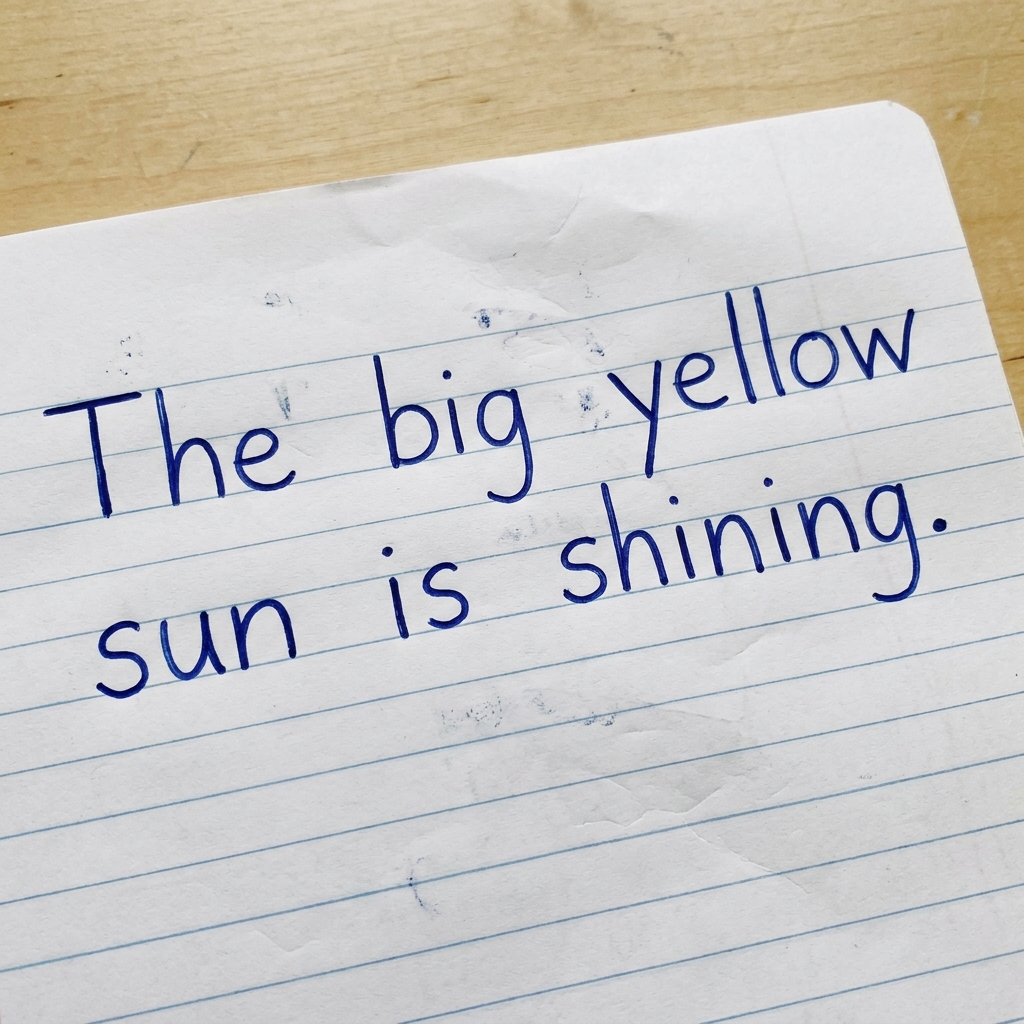 The big yellow
sun is shining.